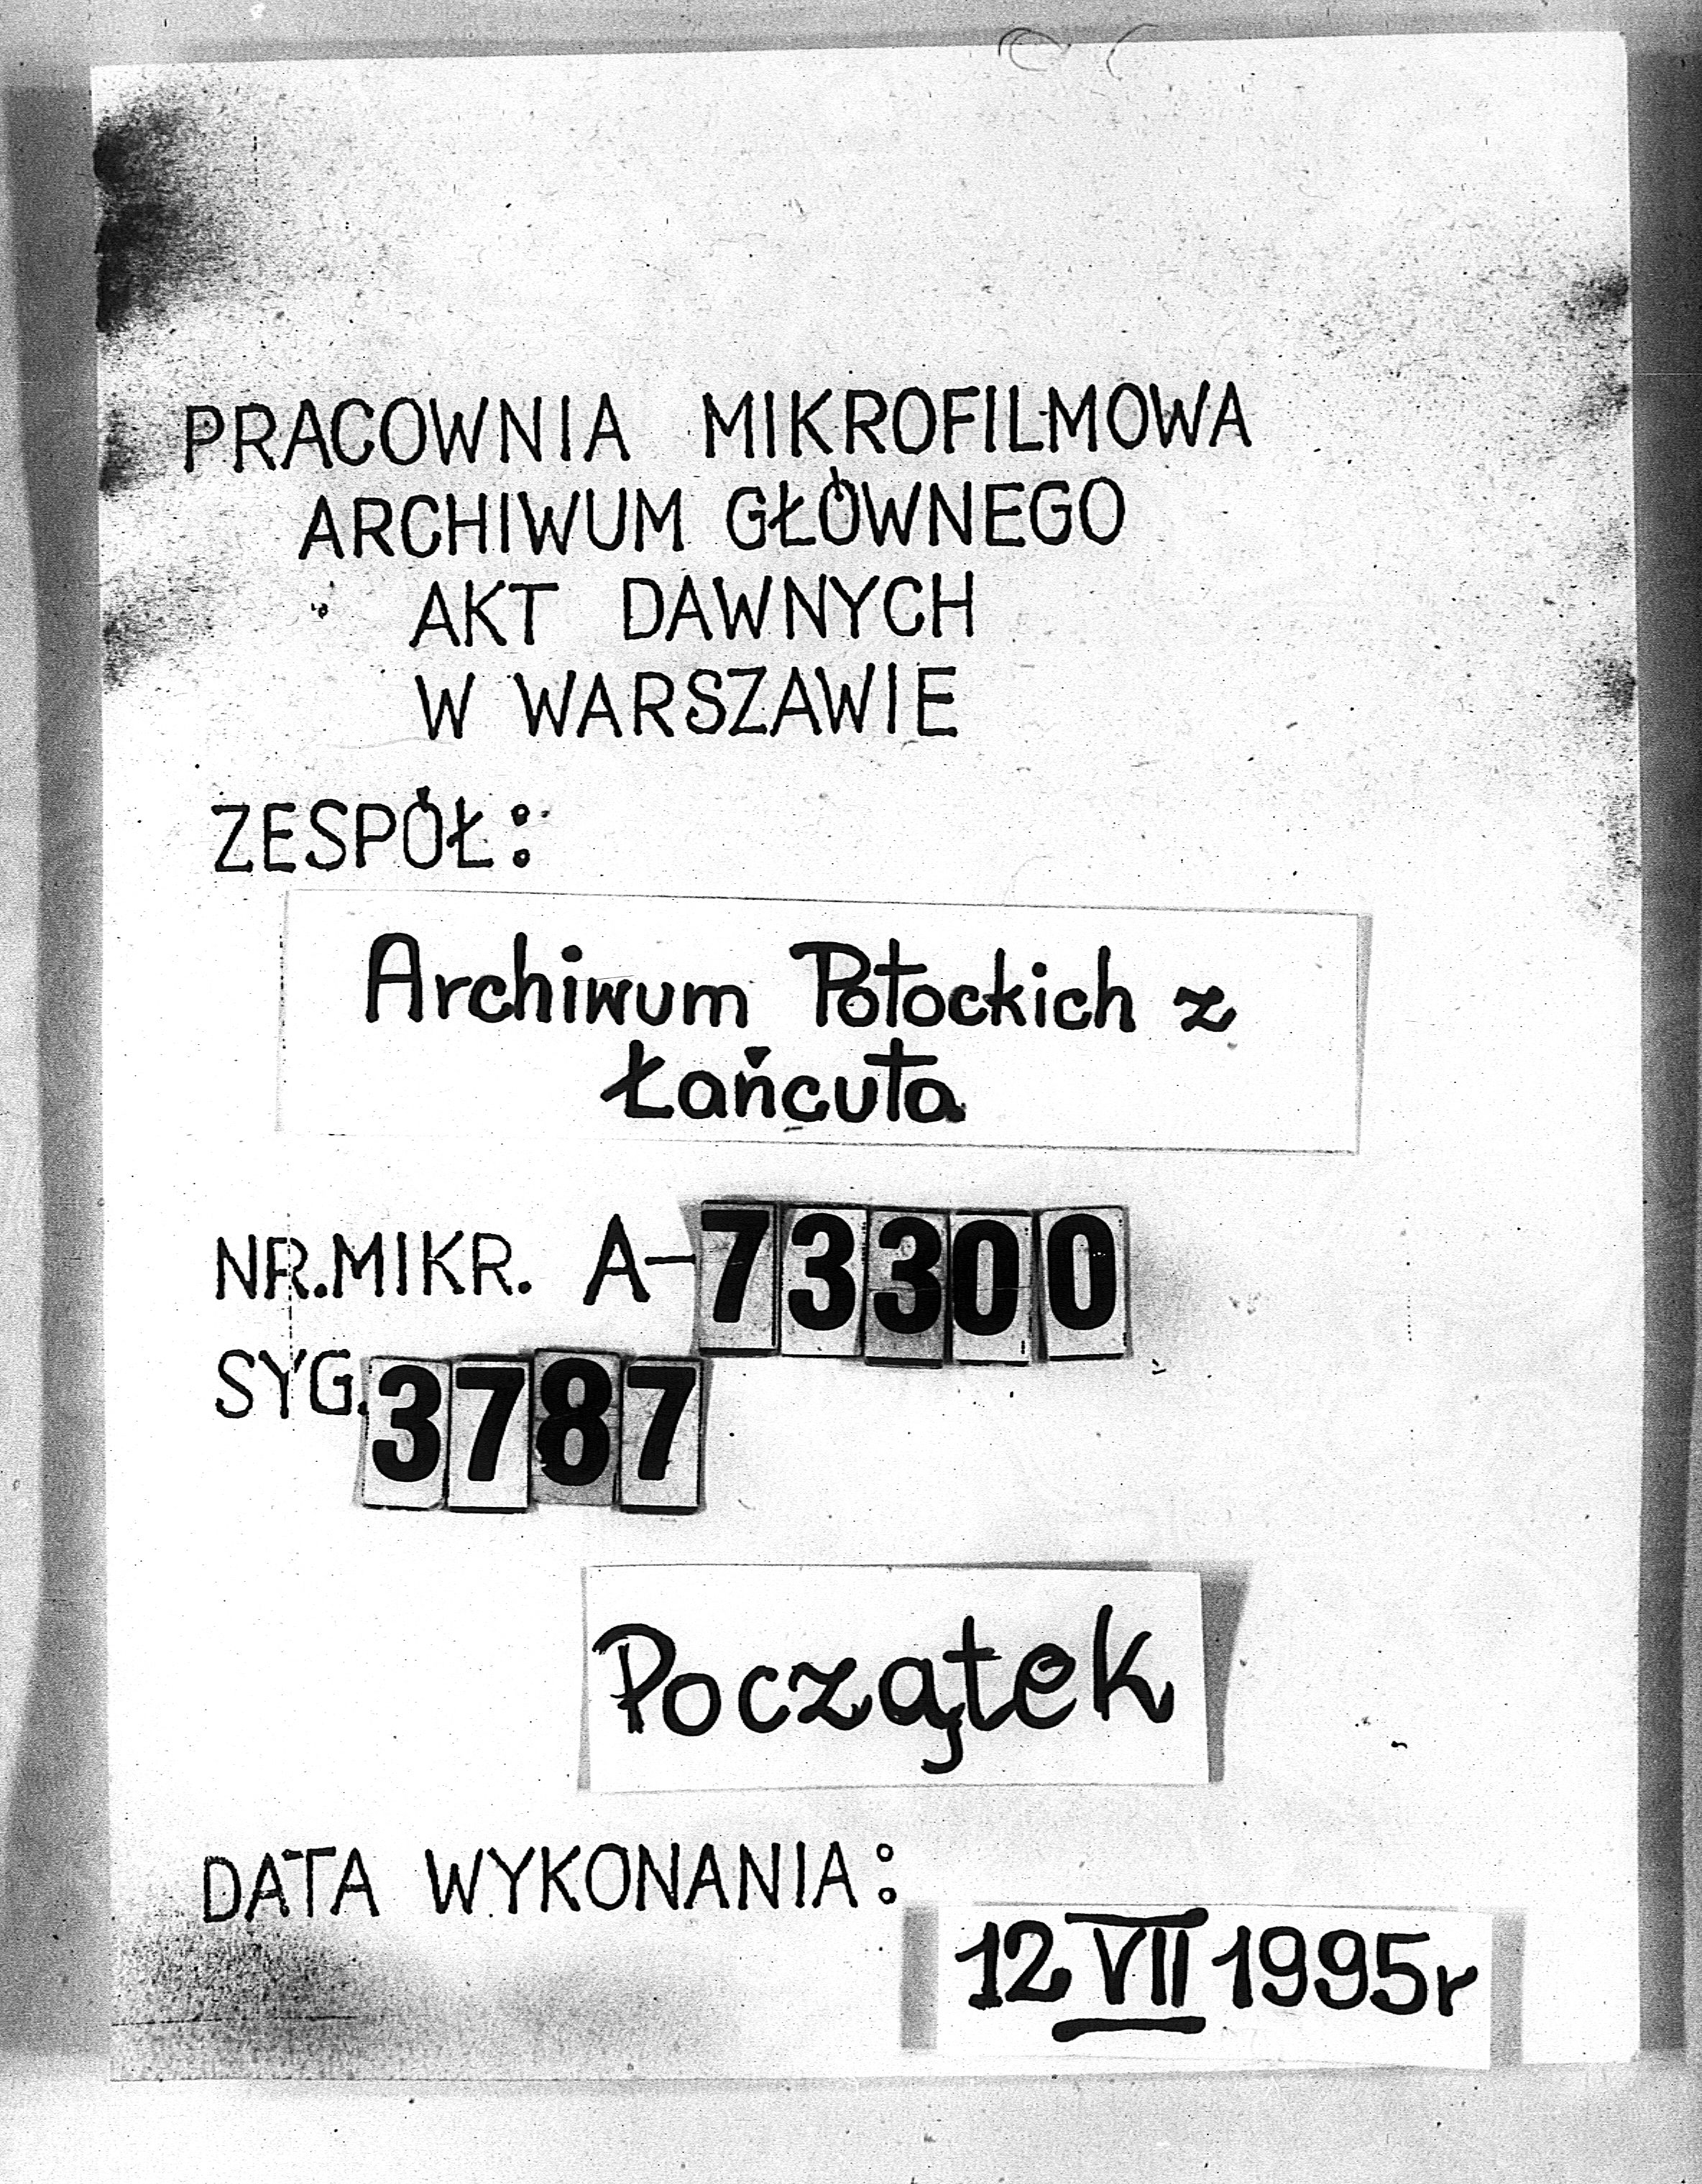 PRACOWNIA MIKROFILMOWA
ARCHIWUM GŁÓWNEGO
AKT DAWNYCH
W WARSZAWIE
ZESPÓŁ:
Archiwum Potockich z
Łańcuta
NR.MIKR. A-73300
SYG.3787
Początek
DATA WYKONANIA:
12 VII 1995r